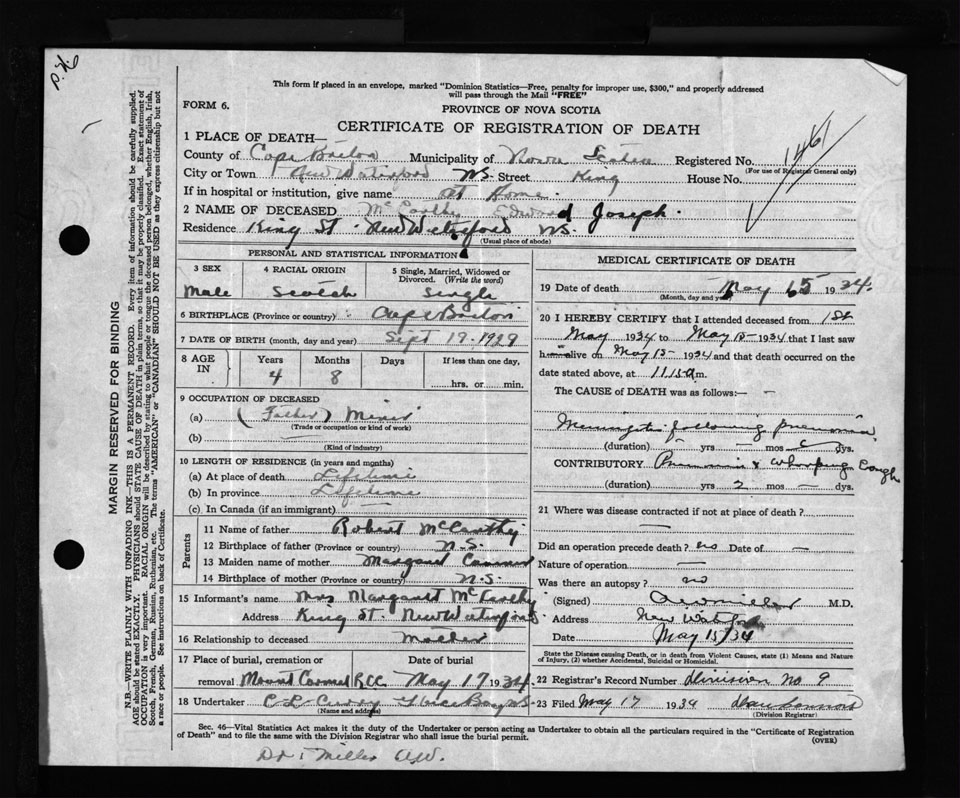 P.H.
This form if placed in an envelope, marked "Dominion Statistics—Free, penalty for improper use, $300," and properly addressed
will pass through the Mail "FREE"
FORM 6.
PROVINCE OF NOVA SCOTIA
CERTIFICATE OF REGISTRATION OF DEATH
1461
1 PLACE OF DEATH—
County of Cape Breton Municipality of Nova Scotia Registered No.
(For use of Registrar General only)
City or Town New Waterford N.S. Street King House No.
If in hospital or institution, give name at Home.
2 NAME OF DECEASED McCarthy Edward Joseph.
Residence King St. New Waterford N.S.
(Usual place of abode)
PERSONAL AND STATISTICAL INFORMATION
3 SEX 4 RACIAL ORIGIN 5 Single, Married, Widowed or Divorced. (Write the word)
Male Scotch Single
6 BIRTHPLACE (Province or country) Cape Breton
7 DATE OF BIRTH (month, day and year) Sept 19. 1929
8 AGE IN Years Months Days If less than one day,
4 8 hrs. or min.
9 OCCUPATION OF DECEASED
(a) (Father) Miner
(Trade or occupation or kind of work)
(b) —
(Kind of industry)
10 LENGTH OF RESIDENCE (in years and months)
(a) At place of death Lifetime
(b) In province Lifetime
(c) In Canada (if an immigrant)
Parents
11 Name of father Robert McCarthy
12 Birthplace of father (Province or country) N.S.
13 Maiden name of mother Margaret
14 Birthplace of mother (Province or country) N.S.
15 Informant's name Mrs Margaret McCarthy
Address King St. New Waterford
16 Relationship to deceased Mother
17 Place of burial, cremation or removal Date of burial
Mount Carmel RCC May 17 1934.
18 Undertaker C L Curry Glace Bay N.S.
(Name and address)
MEDICAL CERTIFICATE OF DEATH
19 Date of death May 15 1934.
(Month, day and year)
20 I HEREBY CERTIFY that I attended deceased from 1st
May 1934 to May 15- 1934 that I last saw
him alive on May 15- 1934 and that death occurred on the
date stated above, at 11.15 a m.
The CAUSE OF DEATH was as follows:— —
Meningitis following pneumonia
(duration) — yrs — mos dys.
CONTRIBUTORY Pneumonia & Whooping Cough
(duration) yrs 2 mos — dys.
21 Where was disease contracted if not at place of death?
—
Did an operation precede death? no Date of —
Nature of operation —
Was there an autopsy? no
(Signed) A W Miller M.D.
Address New Waterford
Date May 15/34
State the Disease causing Death, or in death from Violent Causes, state (1) Means and Nature
of Injury, (2) whether Accidental, Suicidal or Homicidal.
22 Registrar's Record Number division No 9
23 Filed May 17 1934
(Division Registrar)
Sec. 46—Vital Statistics Act makes it the duty of the Undertaker or person acting as Undertaker to obtain all the particulars required in the "Certificate of Registration
of Death" and to file the same with the Division Registrar who shall issue the burial permit.
(OVER)
Dr. Miller A.W.
MARGIN RESERVED FOR BINDING
N.B.—WRITE PLAINLY WITH UNFADING INK—THIS IS A PERMANENT RECORD. Every item of information should be carefully supplied.
AGE should be stated EXACTLY. PHYSICIANS should STATE CAUSE OF DEATH in plain terms, so that it may be properly classified. Exact statement of
OCCUPATION is very important. RACIAL ORIGIN will be described by stating to what people or tongue the deceased person belonged, whether English, Irish,
Scotch, French, German, Russian, Ruthenian, etc. The terms "AMERICAN" or "CANADIAN" SHOULD NOT BE USED as they express citizenship but not
a race or people. See instructions on back of Certificate.